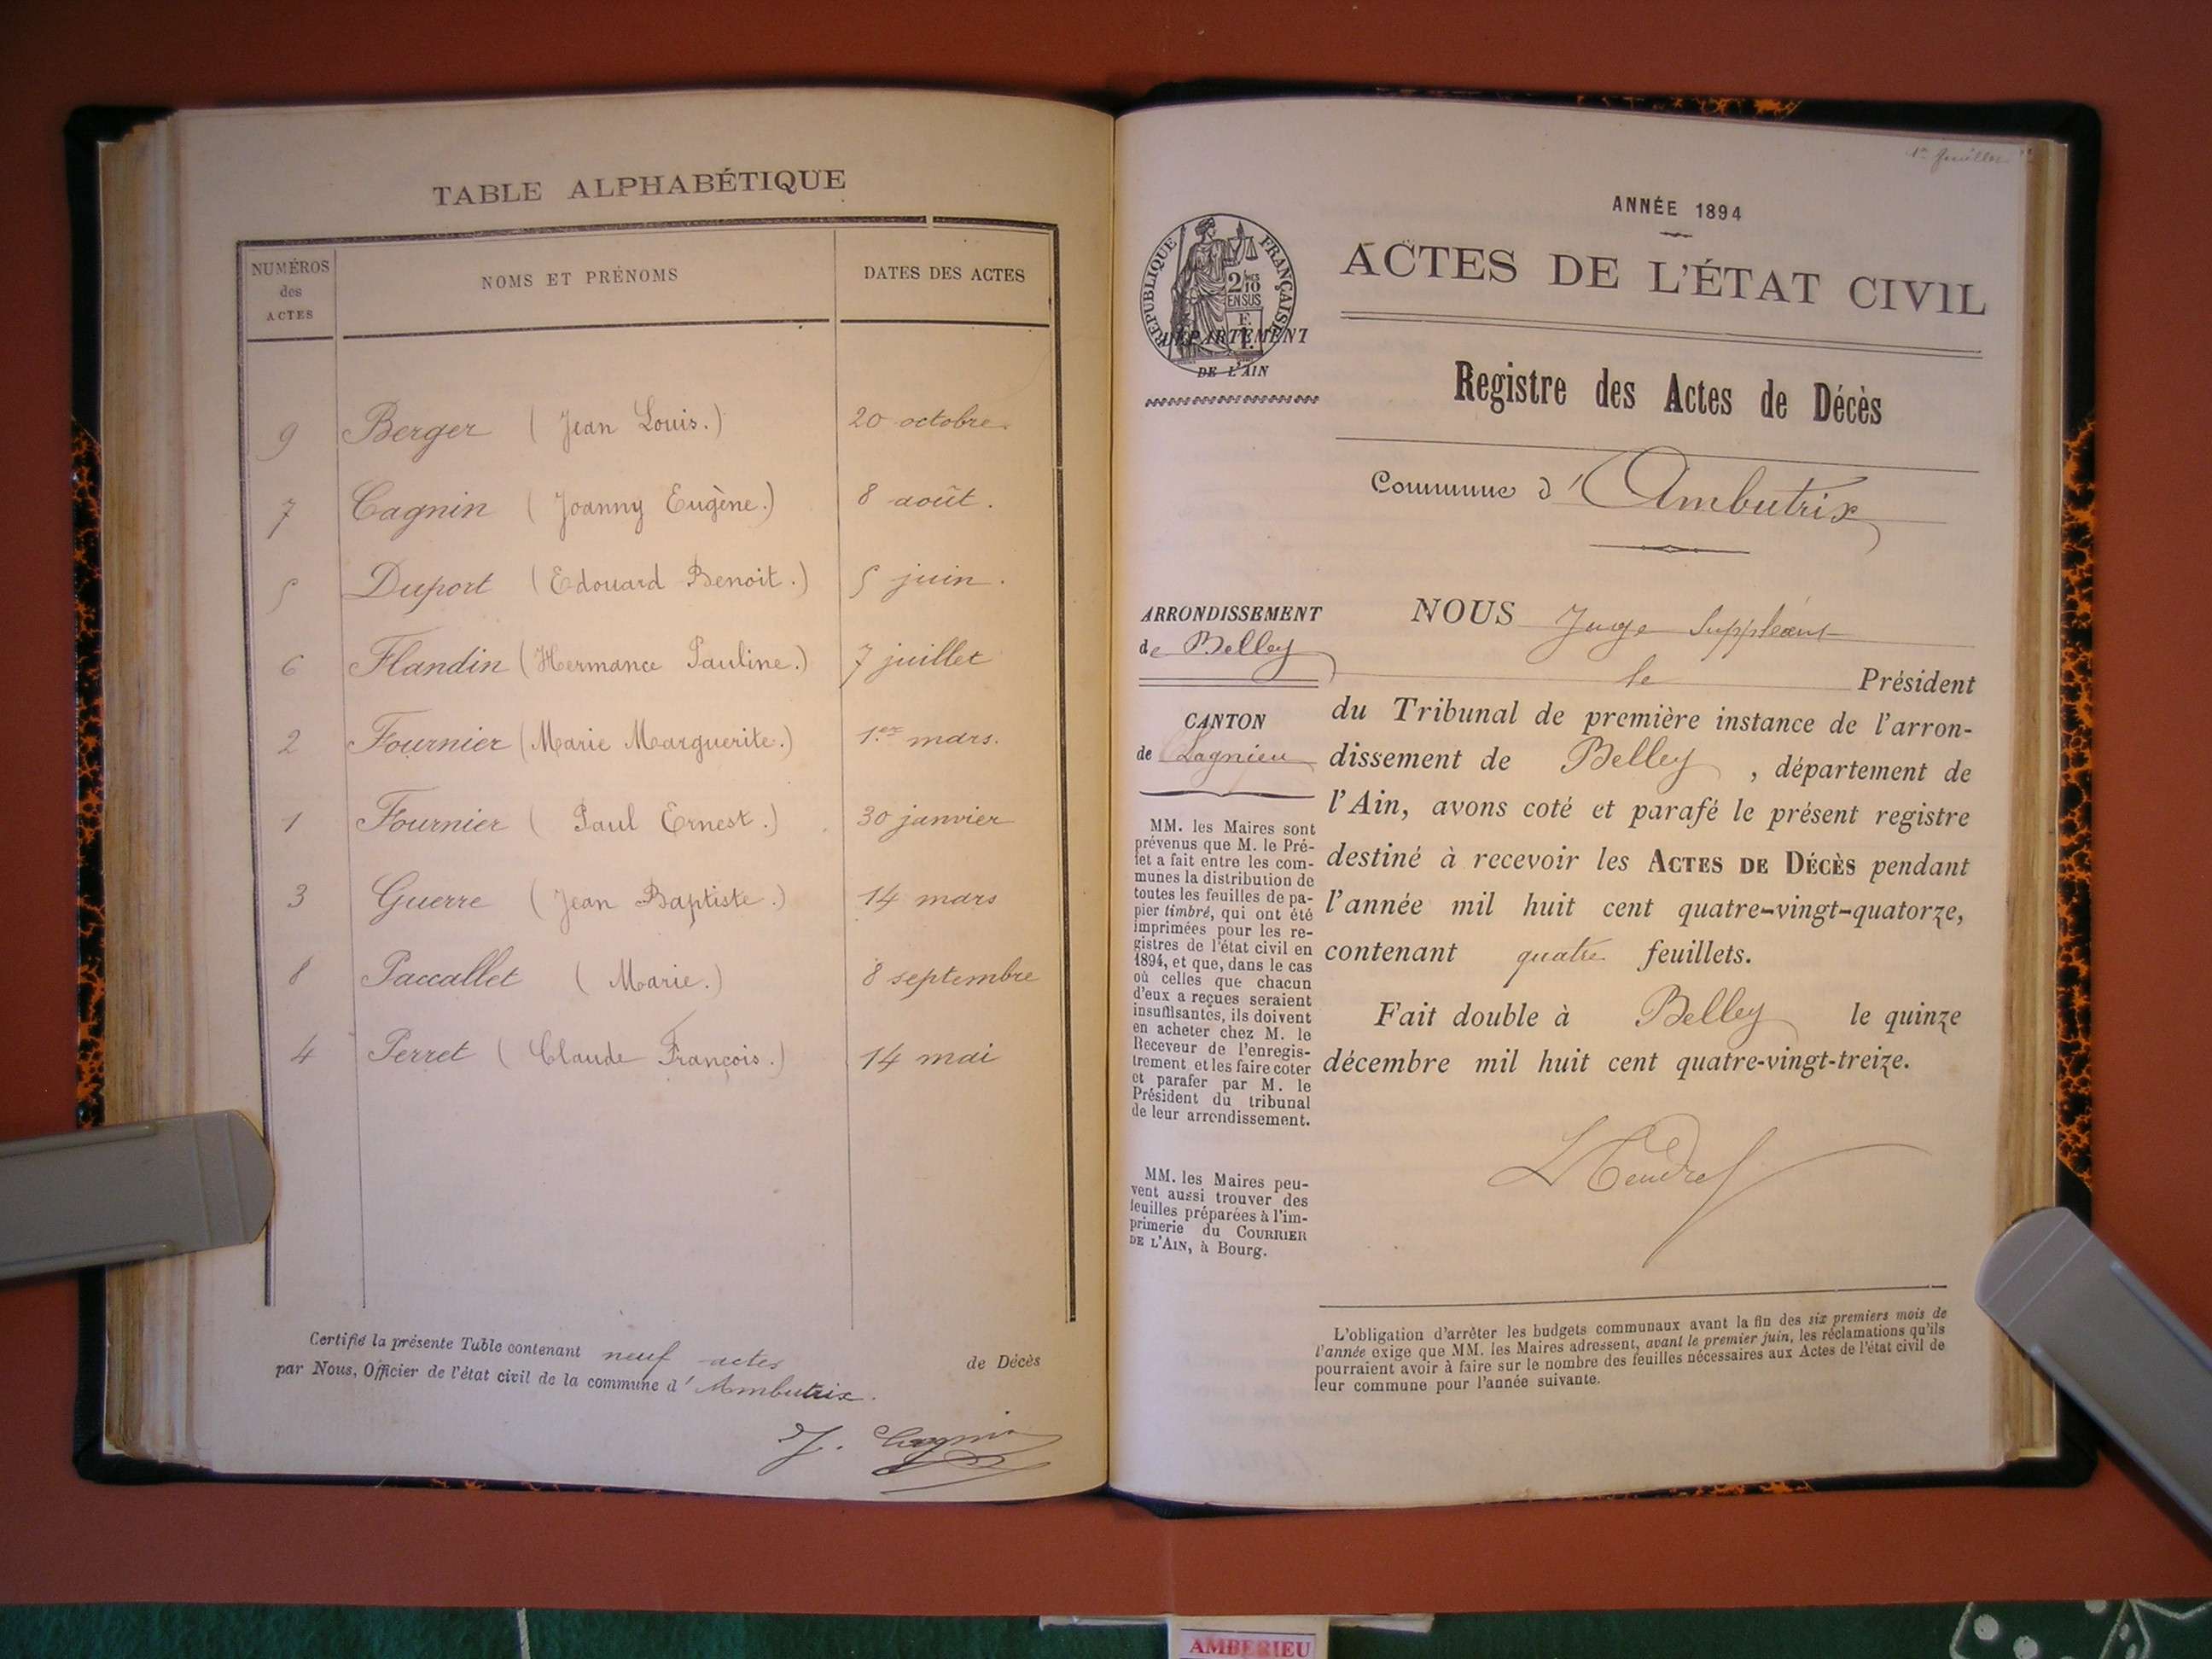 TABLE ALPHABÉTIQUE
NUMÉROS des ACTES NOMS ET PRÉNOMS DATES DES ACTES
9 Berger (Jean Louis.) 20 octobre.
7 Cagnin (Joanny Eugène.) 8 août.
5 Duport (Edouard Benoit.) 5 juin.
6 Flandin (Hermance Pauline.) 7 juillet
2 Fournier (Marie Marguerite.) 1.er mars.
1 Fournier (Paul Ernest.) 30 janvier
3 Guerre (Jean Baptiste.) 14 mars
8 Paccallet (Marie.) 8 septembre
4 Perret (Claude François.) 14 mai
Certifié la présente Table contenant neuf actes de Décès
par Nous, Officier de l'état civil de la commune d'Ambutrix.
J. Cagnin
1er feuillet
ANNÉE 1894
ACTES DE L'ÉTAT CIVIL
RÉPUBLIQUE FRANÇAISE
2/10 EN SUS
DÉPARTEMENT
DE L'AIN
Registre des Actes de Décès
Commune d'Ambutrix
ARRONDISSEMENT
de Belley
CANTON
de Lagnieu
MM. les Maires sont
prévenus que M. le Pré-
fet a fait entre les com-
munes la distribution de
toutes les feuilles de pa-
pier timbré, qui ont été
imprimées pour les re-
gistres de l'état civil en
1894, et que, dans le cas
où celles que chacun
d'eux a reçues seraient
insuffisantes, ils doivent
en acheter chez M. le
Receveur de l'enregis-
trement et les faire coter
et parafer par M. le
Président du tribunal
de leur arrondissement.
MM. les Maires peu-
vent aussi trouver des
feuilles préparées à l'im-
primerie du COURRIER
DE L'AIN, à Bourg.
NOUS Juge Suppléant
le Président
du Tribunal de première instance de l'arron-
dissement de Belley, département de
l'Ain, avons coté et parafé le présent registre
destiné à recevoir les ACTES DE DÉCÈS pendant
l'année mil huit cent quatre-vingt-quatorze,
contenant quatre feuillets.
Fait double à Belley le quinze
décembre mil huit cent quatre-vingt-treize.
L'obligation d'arrêter les budgets communaux avant la fin des six premiers mois de
l'année exige que MM. les Maires adressent, avant le premier juin, les réclamations qu'ils
pourraient avoir à faire sur le nombre des feuilles nécessaires aux Actes de l'état civil de
leur commune pour l'année suivante.
AMBERIEU